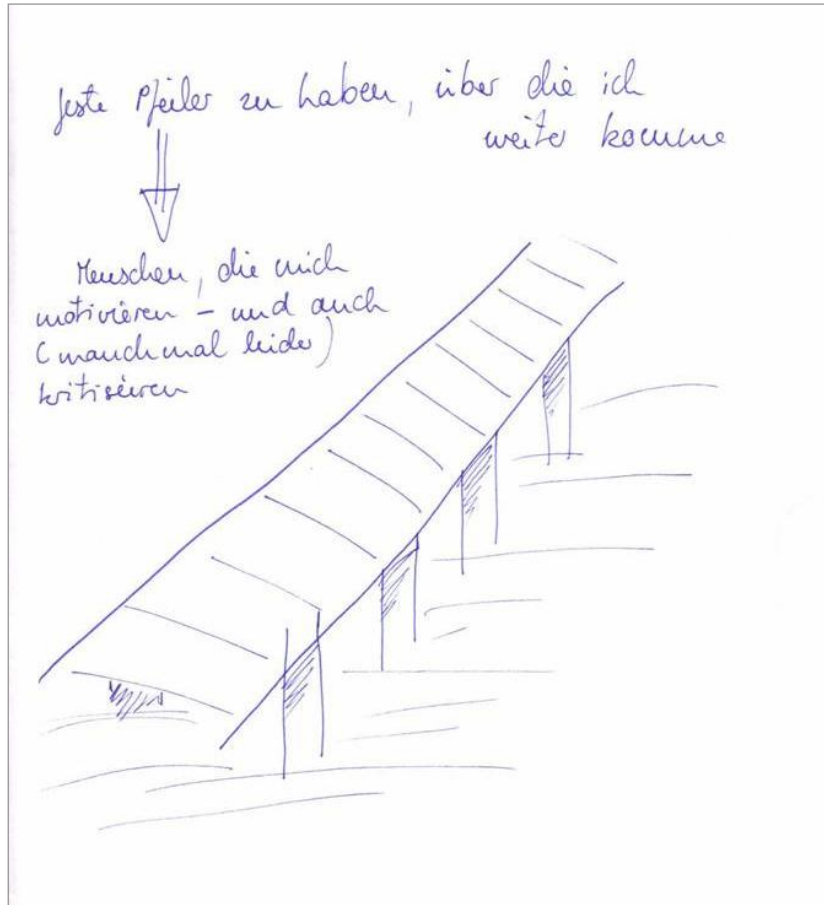 feste Pfeiler zu haben, über die ich
weiter komme
Menschen, die mich
motivieren – und auch
(manchmal leider)
kritisieren